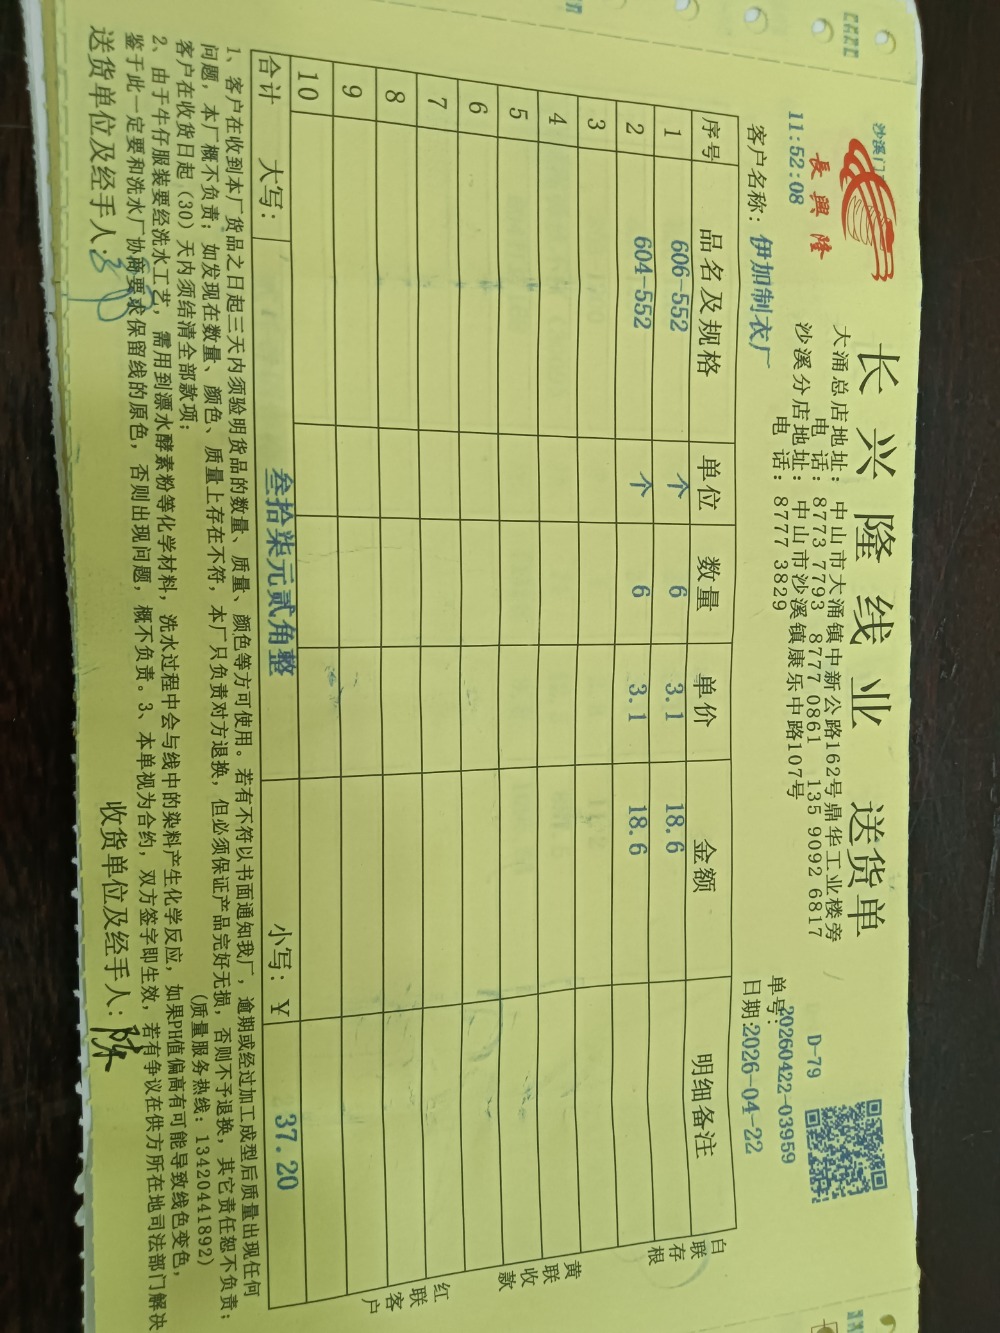 長興隆
长兴隆线业 送货单
沙溪门
11:52:08
大涌总店地址：中山市大涌镇中新公路162号鼎华工业楼旁
电 话：8773 7793 8777 0861 135 9092 6817
沙溪分店地址：中山市沙溪镇康乐中路107号
电 话：8777 3829
D-79
单号：20260422-03959
客户名称：伊加制衣厂
日期：2026-04-22
序号 品名及规格 单位 数量 单价 金额 明细备注
1 606-552 个 6 3.1 18.6
2 604-552 个 6 3.1 18.6
3
4
5
6
7
8
9
10
合计 大写：叁拾柒元贰角整 小写：¥ 37.20
白联存根
黄联收款
红联客户
1、客户在收到本厂货品之日起三天内须验明货品的数量、质量、颜色等方可使用。若有不符以书面通知我厂，逾期或经过加工成型后质量出现任何
问题，本厂概不负责；如发现在数量、颜色、质量上存在不符，本厂只负责对方退换，但必须保证产品完好无损，否则不予退换，其它责任恕不负责；
客户在收货日起（30）天内须结清全部款项；
(质量服务热线：13420441892)
2、由于牛仔服装要经洗水工艺，需用到漂水酵素粉等化学材料，洗水过程中会与线中的染料产生化学反应，如果PH值偏高有可能导致线色变色，
鉴于此一定要和洗水厂协商要求保留线的原色，否则出现问题，概不负责。3、本单视为合约，双方签字即生效，若有争议在供方所在地司法部门解决
送货单位及经手人：
收货单位及经手人：陈